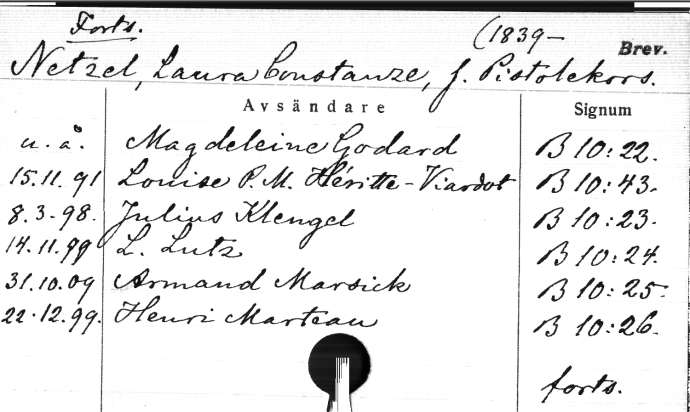 Forts.
(1839-
Brev.
Netzel, Laura Constanze, f. Pistolekors.
Avsändare Signum
u. å. Magdeleine Godard B 10:22.
15.11.91 Louise P. M. Héritte-Viardot B 10:43.
8.3-98. Julius Klengel B 10:23.
14.11.99 L. Lutz B 10:24.
31.10.09 Armand Marsick B 10:25.
22.12.99. Henri Marteau B 10:26.
forts.